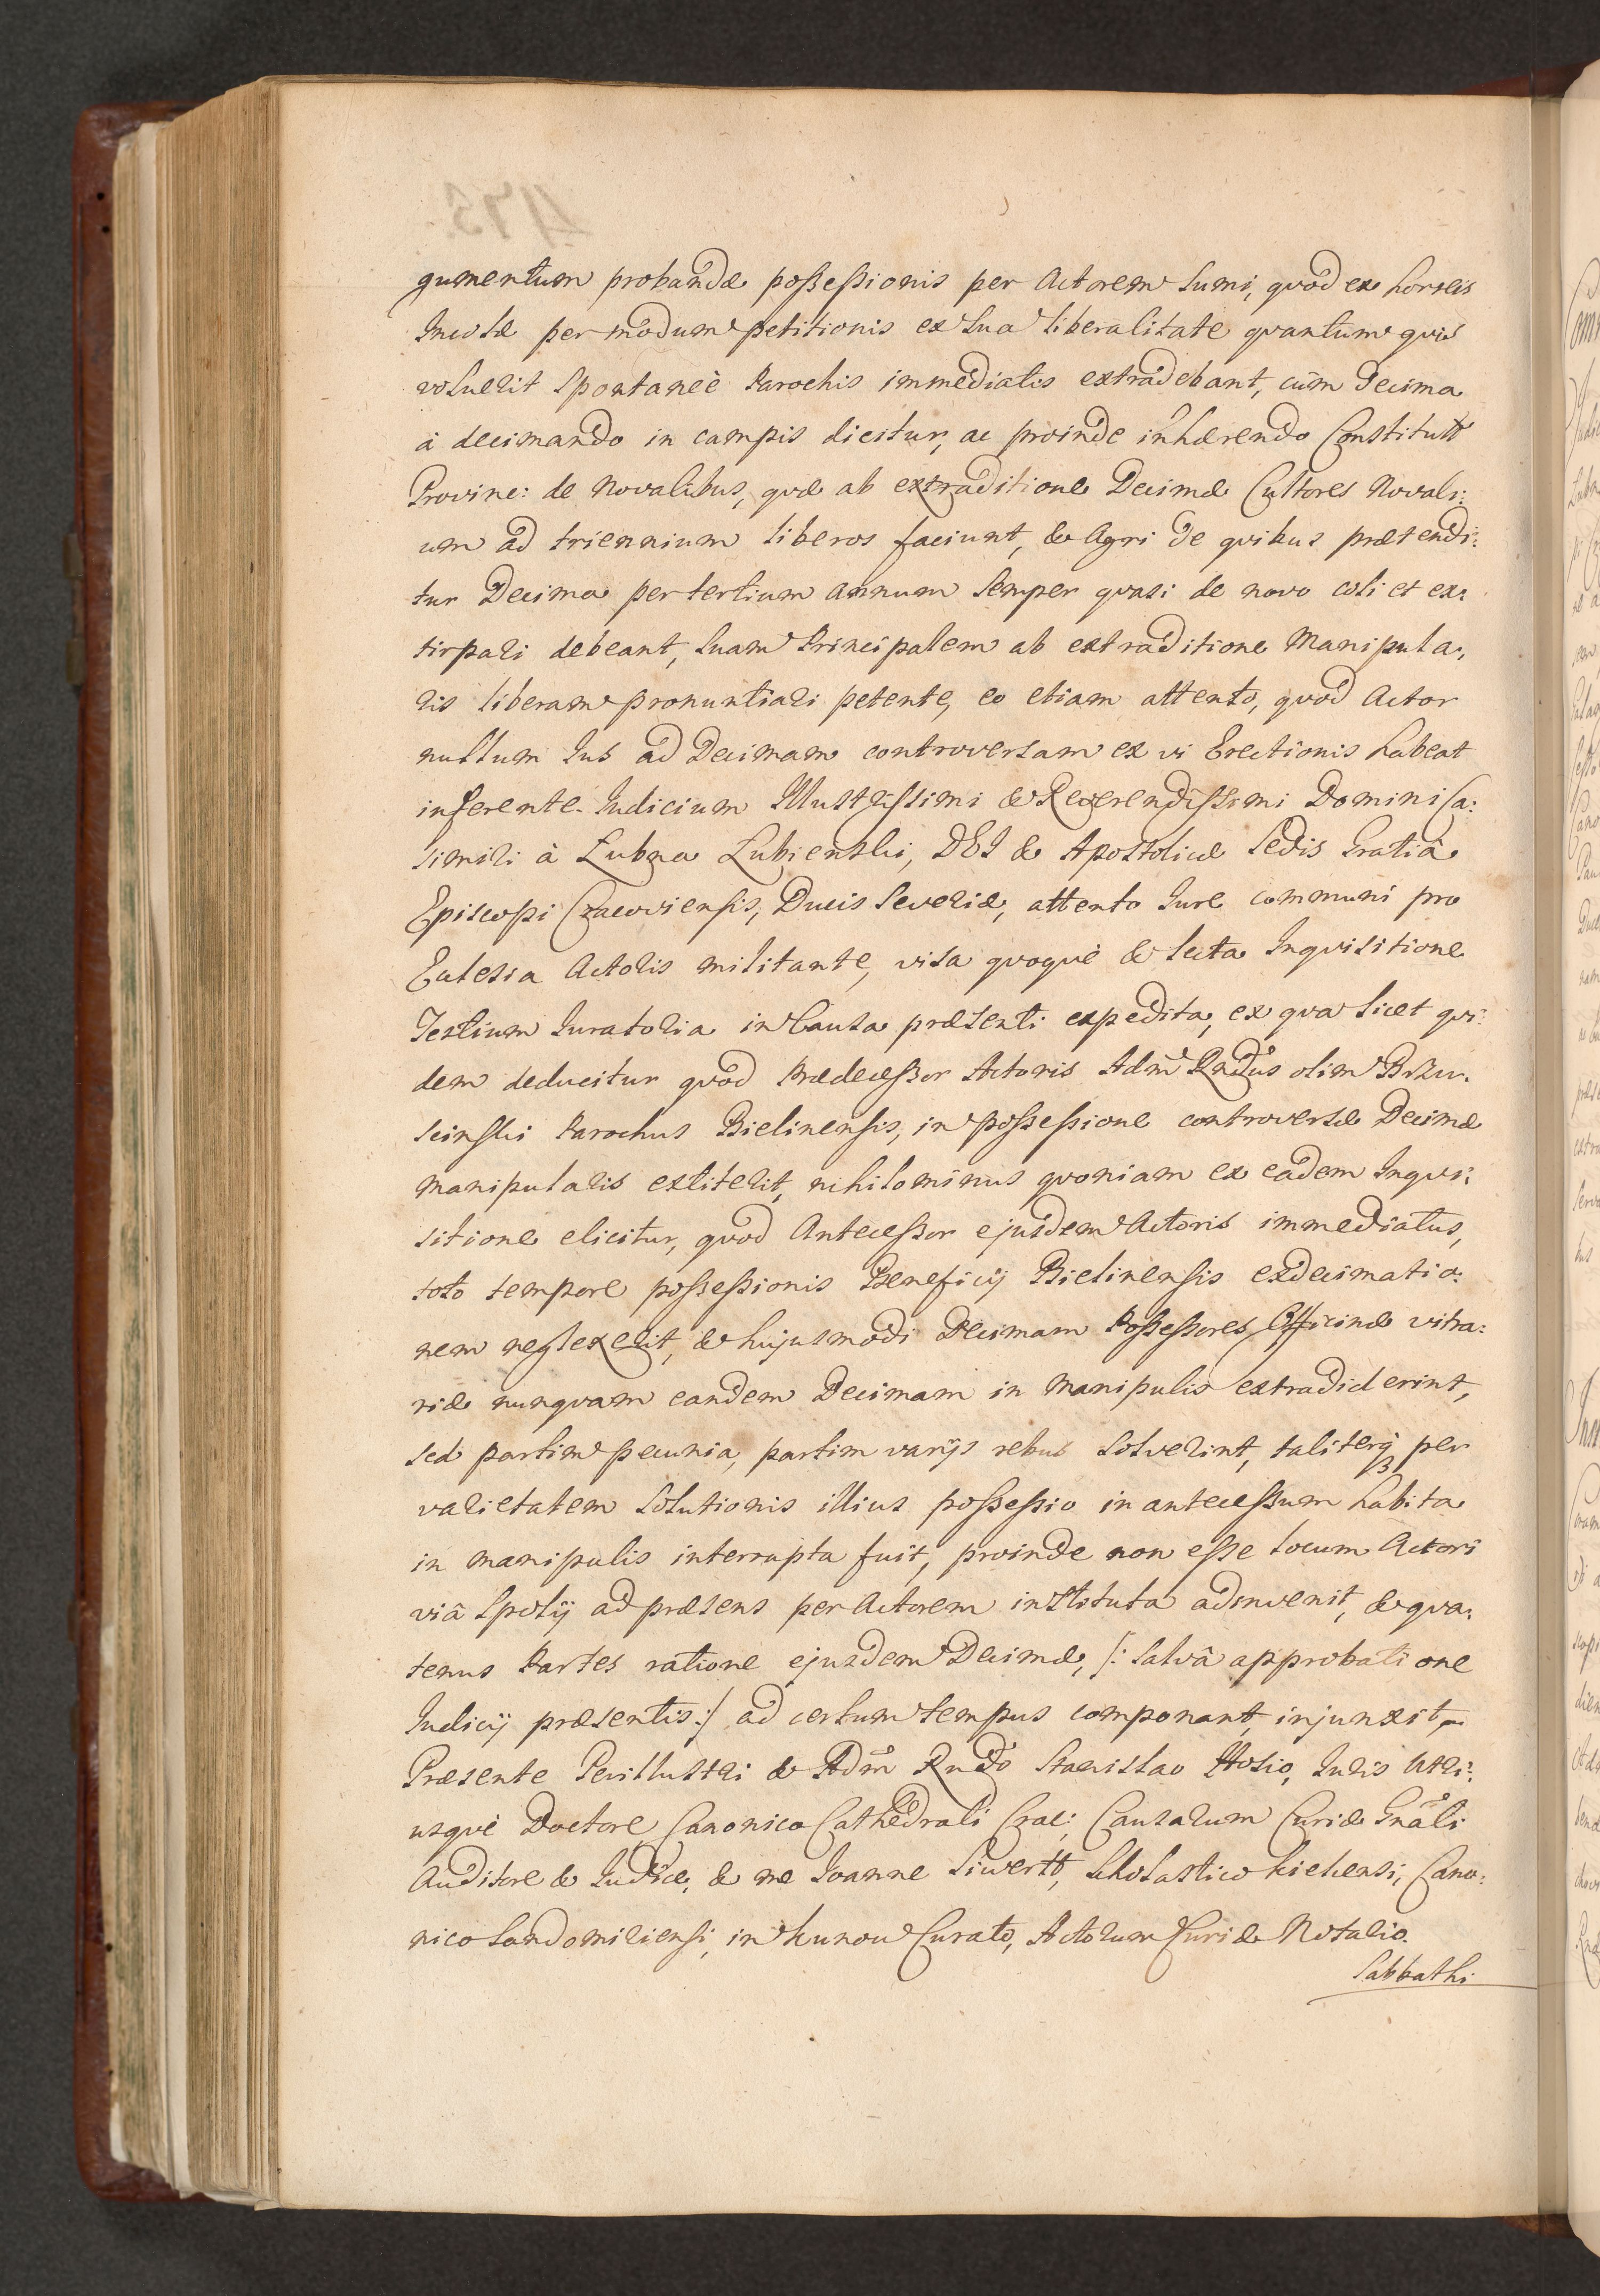 gumentum probandæ possessionis per Actorem sumi, quòd ex horreis
Incolæ per modum petitionis ex sua liberalitate quantum quis
voluerit spontaneè Parochis immediatis extradebant, cùm Decima
à decimando in campis dicitur, ac proinde inhærendo Constitutt
Provinc: de Novalibus, quæ ab extraditione Decimæ Cultores Novali:
um ad triennium liberos faciunt, & Agri de quibus prætendi:
tur Decima per tertium annum semper quasi de novo coli et ex:
tirpari debeant, suam Principalem ab extraditione Manipula:
ris liberam pronuntiari petente, eo etiam attento, quòd Actor
nullum Jus ad Decimam controversam ex vi Erectionis habeat
inferente. Judicium Illustrissimi & Reverendissimi Domini Ca:
simiri à Łubna Łubienski, DEI & Apostolicæ Sedis Gratiâ
Episcopi Cracoviensis, Ducis Severiæ, attento Jure communi pro
Ecclesia Actoris militante, visa quoquè & lecta Inquisitione
Testium Juratoria in Causa præsenti expedita, ex qua licet qui:
dem deducitur quòd Prædecessor Actoris Adm Rndus olim Brzu:
scinski Parochus Bielinensis, in possessione controversæ Decimæ
manipularis extiterit, nihilominus quoniam ex eadem Inqui:
sitione elicitur, quòd Antecessor ejusdem Actoris immediatus,
toto tempore possessionis Beneficij Bielinensis exdecimatio:
nem neglexerit, & hujusmodi Decimam Possessores Officinæ vitra:
riæ nunquam eandem Decimam in Manipulis extradiderint,
sed partim pecunia, partim varijs rebus solverint, taliterq3 per
varietatem solutionis illius possessio in antecessum habita
in manipulis interrupta fuit, proinde non esse locum Actori
viâ Spolij ad præsens per Actorem instituta adinvenit, & qua:
tenus Partes ratione ejusdem Decimæ, /: salvâ approbatione
Judicij præsentis :/ ad certum tempus componant, injunxit,
Præsente Perillustri & Adm Rndo Stanislao Hosio, Juris Utri:
usquè Doctore, Canonico Cathedrali Crac: Causarum Curiæ Gnali
Auditore & Judice, & me Joanne Siwertt, Scholastico Kielcensi, Cano:
nico Sandomiriensi, in Kunow Curato, Actorum Curiæ Notario.
Sabbathi